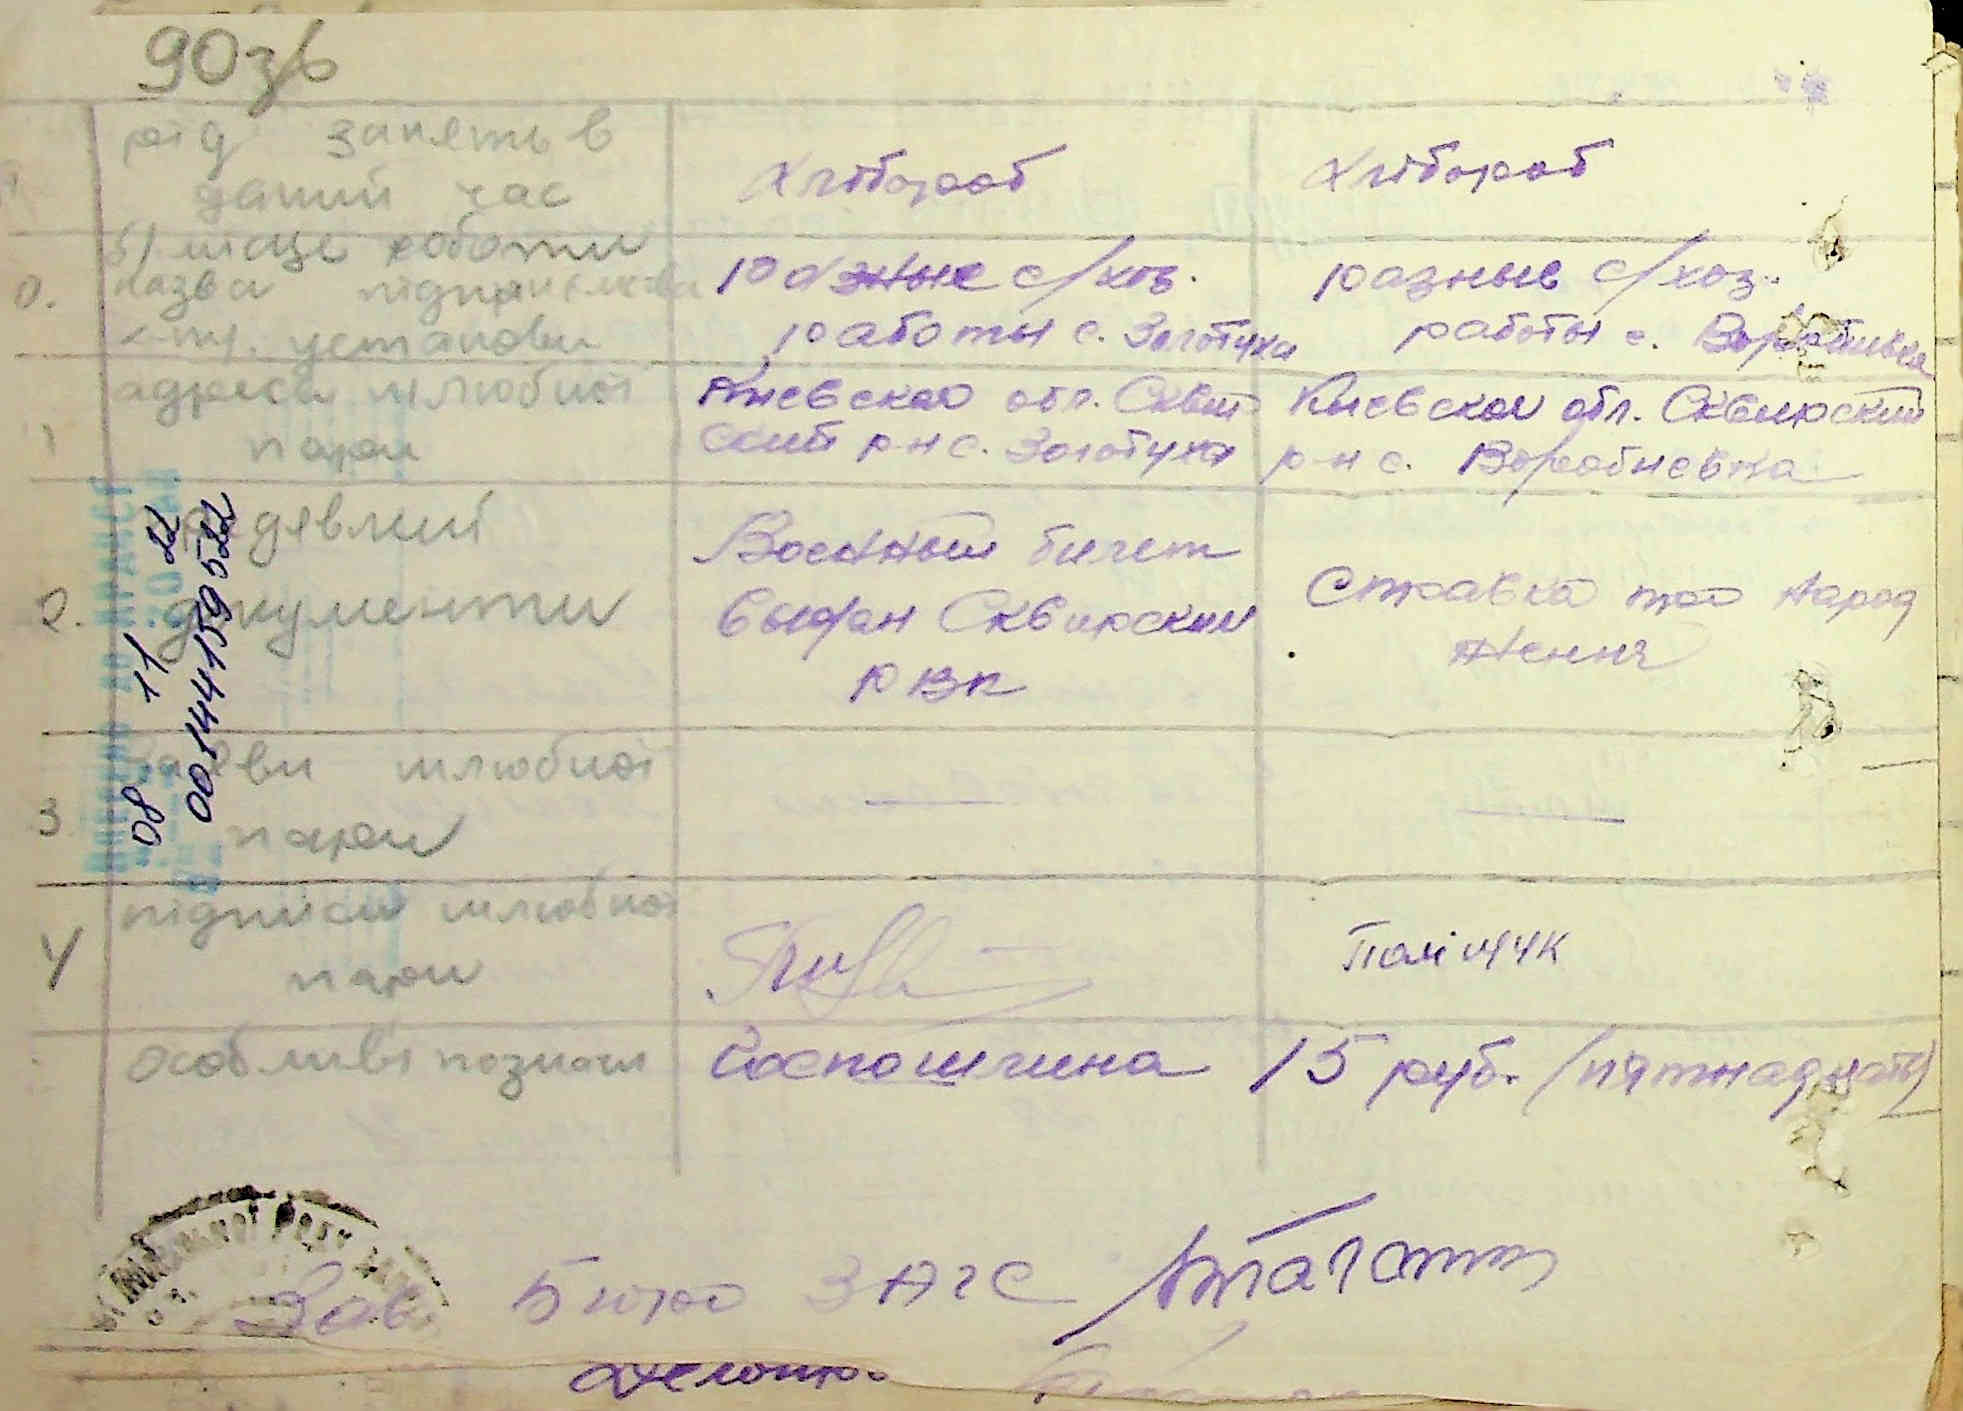 90зв
рід занять в
даний час
Хлібороб
Хлібороб
0.
б) місце роботи
назва підприємства
установи
разные с/хоз.
работы с. Золотуха
разные с/хоз.
работы с. Воробиевка
1
адреса шлюбної
пари
Киевская обл. Сквир
ский р-н с. Золотуха
Киевская обл. Сквирский
р-н с. Воробиевка
2.
документи
Военный билет
выдан Сквирским
РВК
Справка про народ
ження
08 11 22
00144159522
3
шлюбної
пари
—
—
4
підписи шлюбної
пари
Поліщук
особливі познаки
Госпошлина
15 руб. (пятнадцать)
Зав. Бюро ЗАГС
Делопр.